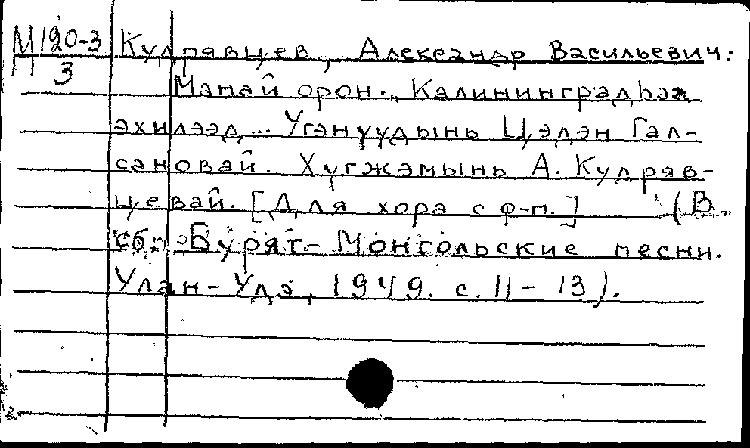 М120-3
3
Кудрявцев, Александр Васильевич:
Манай орон. Калининградһаа
эхилээд... Үгэнүүдынь Цэдэн Гал-
сановай. Хүгжэмынь А. Кудряв-
цевай. [Для хора с ф-п.] (В
сб.: Бурят-Монгольские песни.
Улан-Удэ, 1949. с. 11-13).